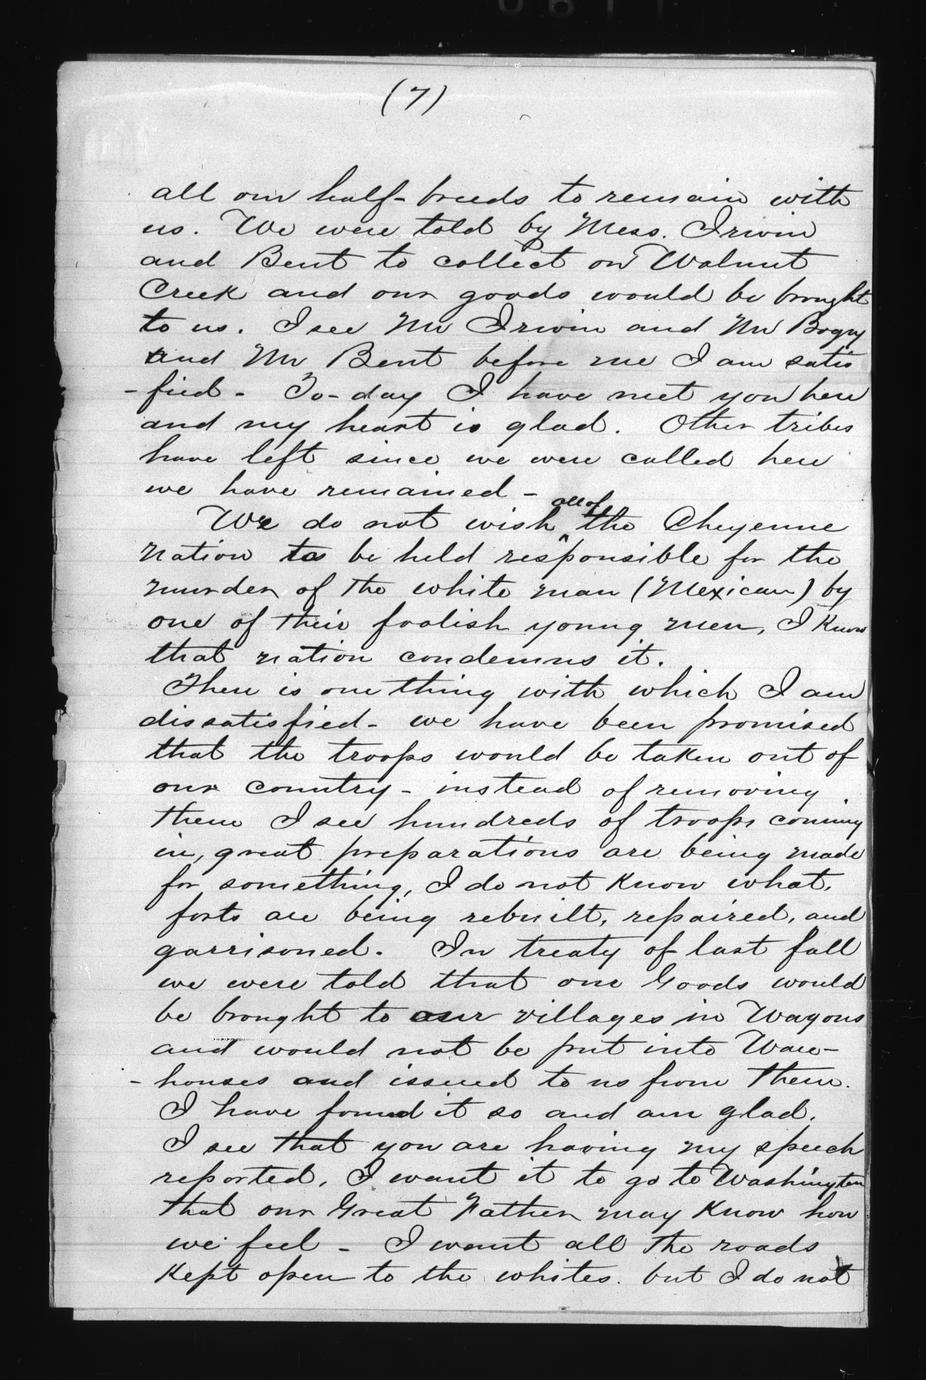 (7)
all our half-breeds to remain with
us. We were told by Mess. Irwin
and Bent to collect on Walnut
Creek and our goods would be brought
to us. I see Mr Irwin and Mr Bogy
and Mr Bent before me I am satis
-fied - To-day I have met you here
and my heart is glad. Other tribes
have left since we were called here
we have remained -
We do not wish all of the Cheyenne
nation to be held responsible for the
murder of the white man (Mexican) by
one of their foolish young men, I know
that nation condemns it.
There is one thing with which I am
dissatisfied - we have been promised
that the troops would be taken out of
our country - instead of removing
them I see hundreds of troops coming
in, great preparations are being made
for something, I do not know what.
forts are being rebuilt, repaired, and
garrisoned. In treaty of last fall
we were told that our Goods would
be brought to our villages in Wagons
and would not be put into Ware-
-houses and issued to us from them.
I have found it so and am glad.
I see that you are having my speech
reported, I want it to go to Washington
that our Great Father may know how
we feel - I want all the roads
kept open to the whites. but I do not